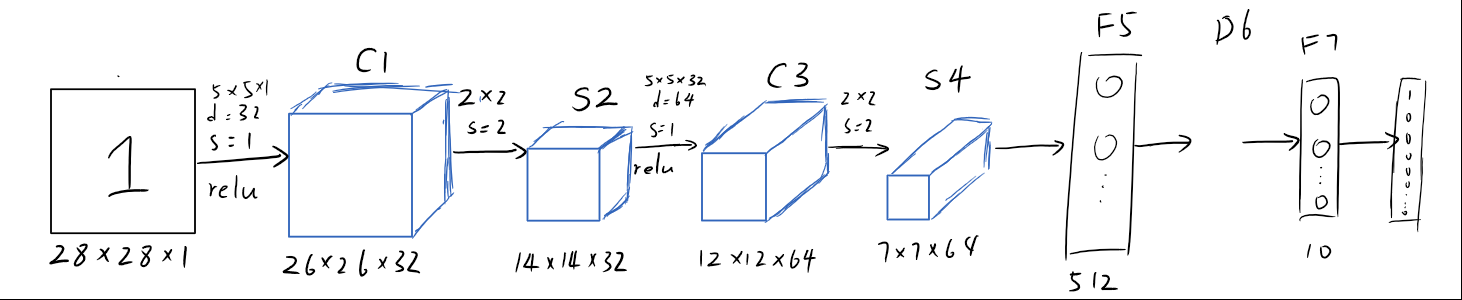 1
28×28×1
5×5×1
d=32
s=1
relu
C1
26×26×32
2×2
s=2
S2
14×14×32
5×5×32
d=64
s=1
relu
C3
12×12×64
2×2
s=2
S4
7×7×64
F5
0
0
⋮
512
D6
F7
0
0
⋮
0
10
1
0
0
0
0
0
0
⋮